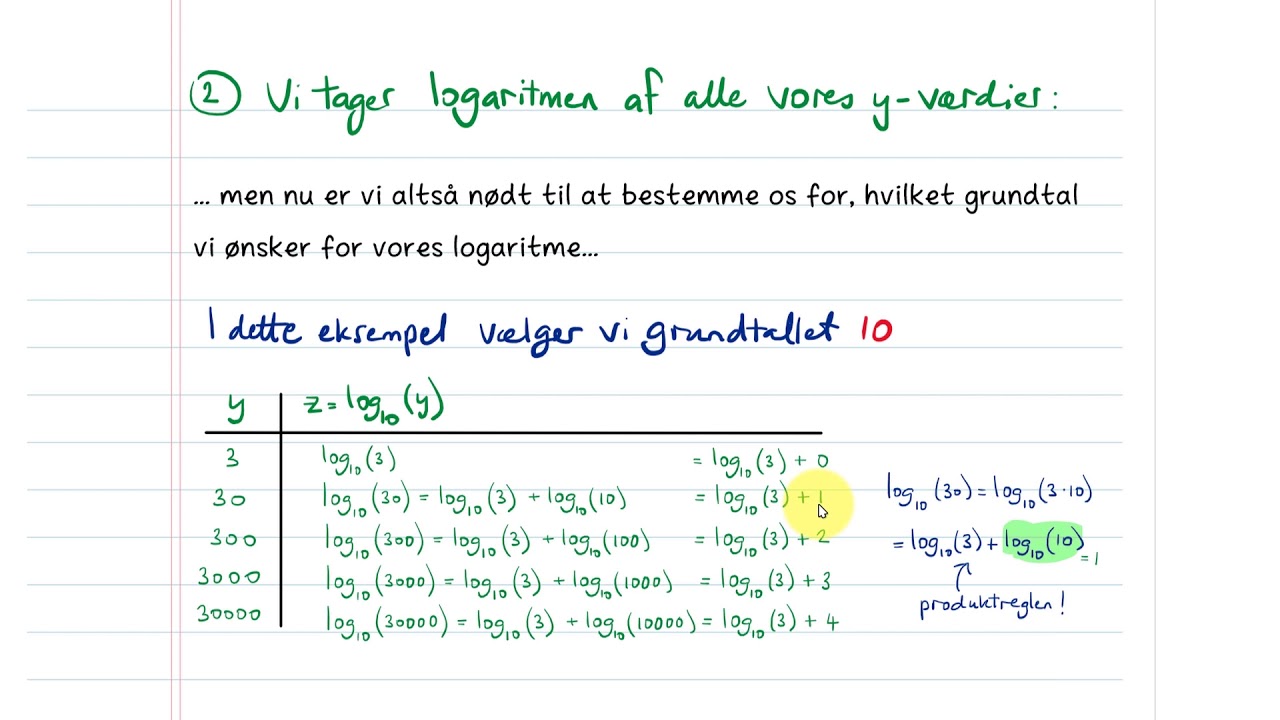 2 Vi tager logaritmen af alle vores y-værdier:
... men nu er vi altså nødt til at bestemme os for, hvilket grundtal
vi ønsker for vores logaritme...
I dette eksempel vælger vi grundtallet 10
y z = log₁₀(y)
3 log₁₀(3) = log₁₀(3) + 0
30 log₁₀(30) = log₁₀(3) + log₁₀(10) = log₁₀(3) + 1
300 log₁₀(300) = log₁₀(3) + log₁₀(100) = log₁₀(3) + 2
3000 log₁₀(3000) = log₁₀(3) + log₁₀(1000) = log₁₀(3) + 3
30000 log₁₀(30000) = log₁₀(3) + log₁₀(10000) = log₁₀(3) + 4
log₁₀(30) = log₁₀(3·10)
= log₁₀(3) + log₁₀(10) = 1
produktreglen!